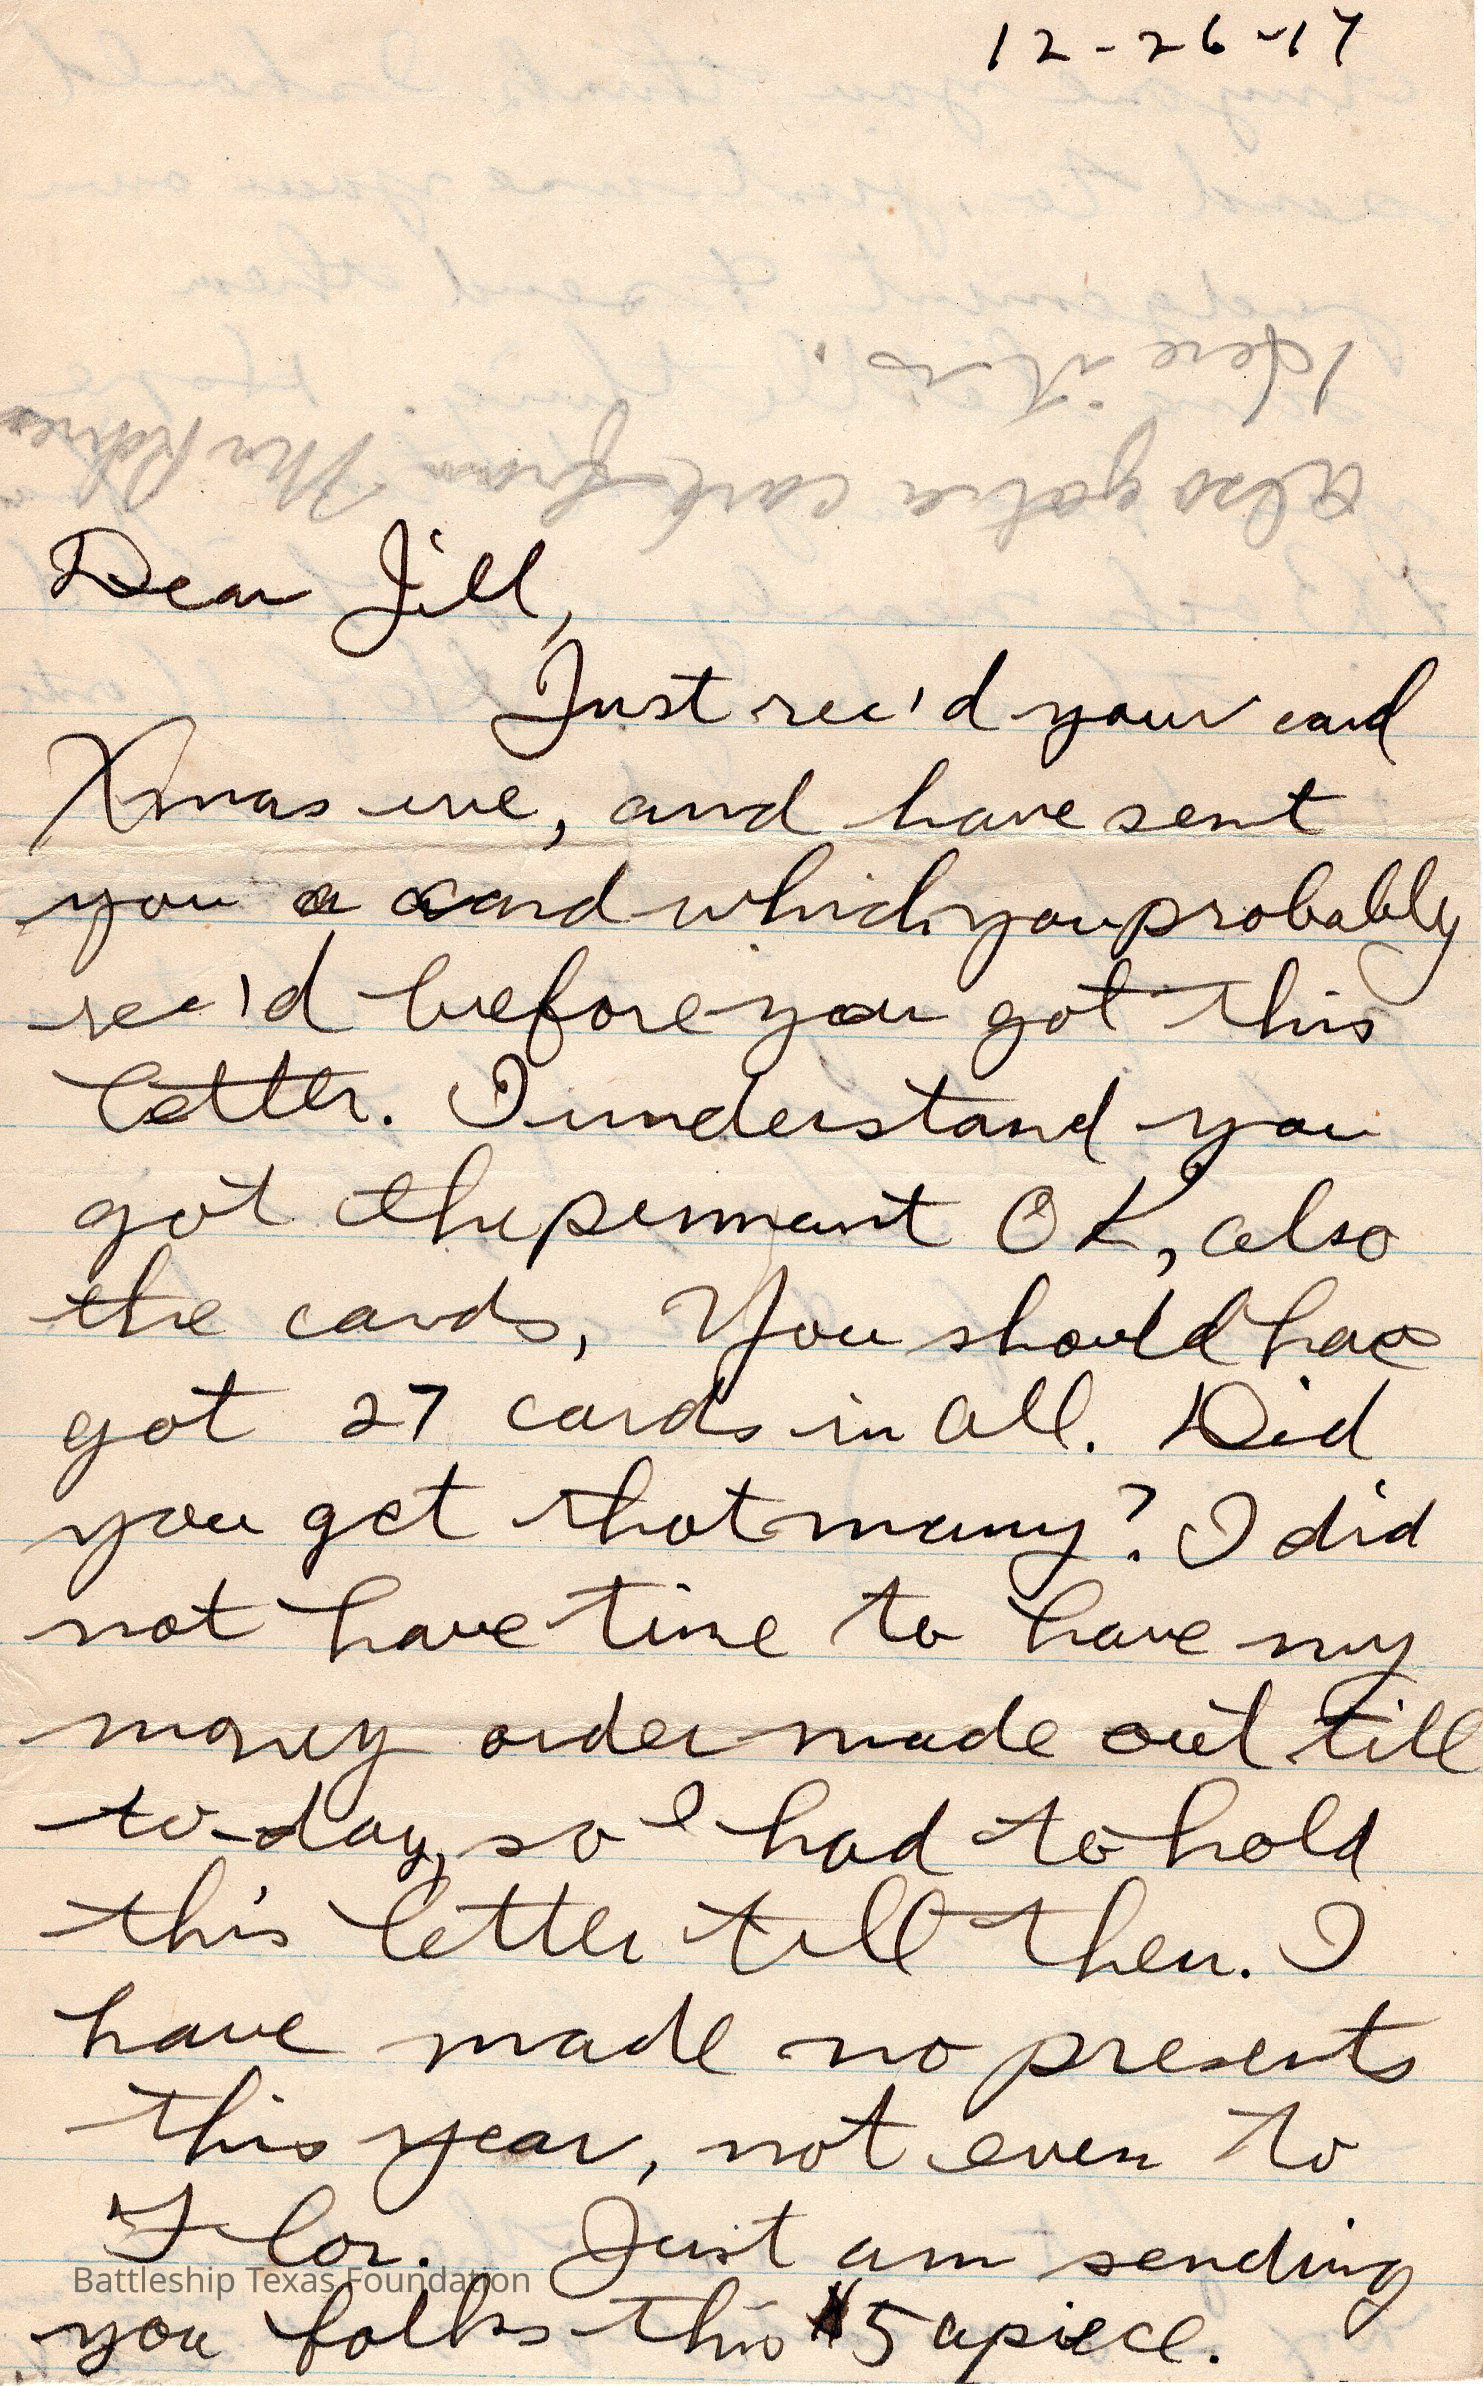 12-26-17
Here it is.
Also got a card from Mrs
Dear Jill,
Just rec'd your card
Xmas eve, and have sent
you a card which you probably
rec'd before you got this
letter. I understand you
got the pennant OK, also
the cards, You should have
got 27 cards in all. Did
you get that many? I did
not have time to have my
money order made out till
to-day, so I had to hold
this letter till then. I
have made no presents
this year, not even to
Flor. Just am sending
you folks this $5 apiece.
Battleship Texas Foundation